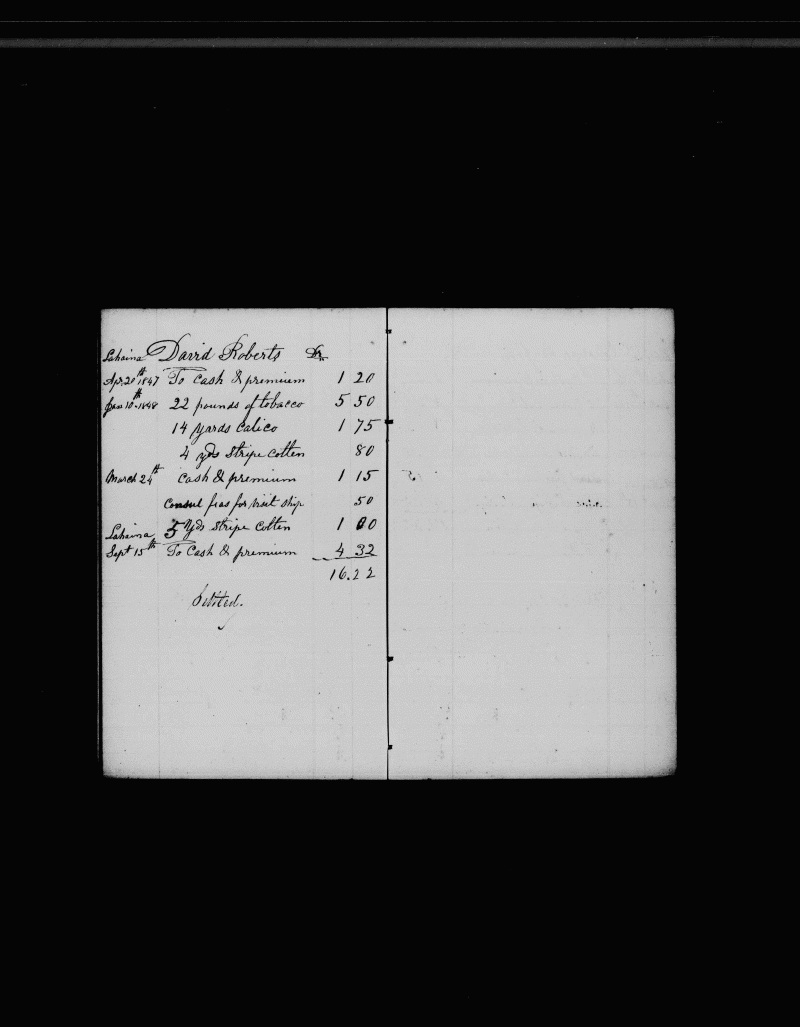 Lahaina David Roberts Dr.
Apr. 20th 1847 To Cash & premium 1 20
Jan 10th 1848 22 pounds of tobacco 5 50
14 yards Calico 1 75
4 yds Stripe Cotten 80
March 24th Cash & premium 1 15
Consul feas for visit ship 50
Lahaina 5 yds Stripe Cotten 1 00
Sept 15th To Cash & premium 4 32
16.22